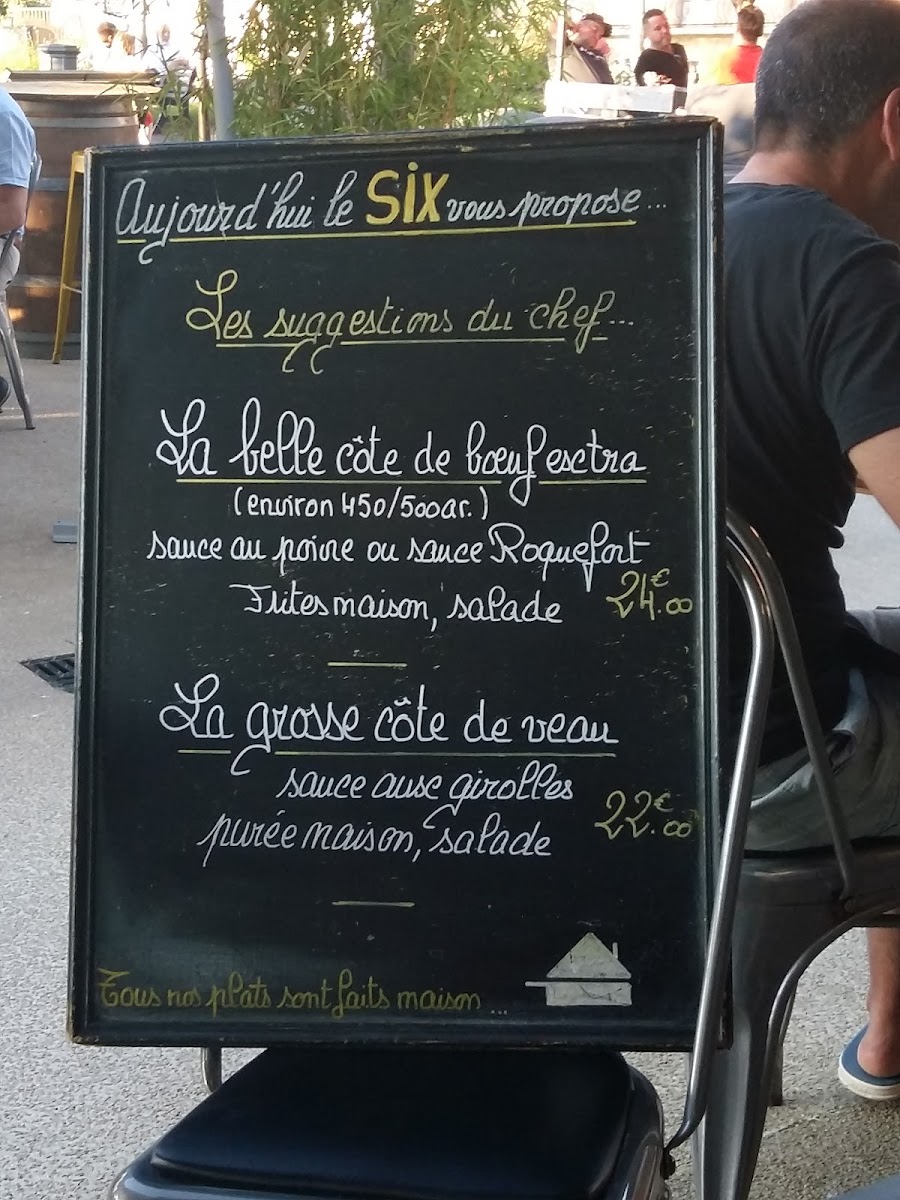 Aujourd'hui le SiX vous propose...
Les suggestions du chef...
La belle côte de bœuf extra
(environ 450/500gr.)
sauce au poivre ou sauce Roquefort
Frites maison, salade 24€.00
La grosse côte de veau
sauce aux girolles
purée maison, salade 22€.00
Tous nos plats sont faits maison...